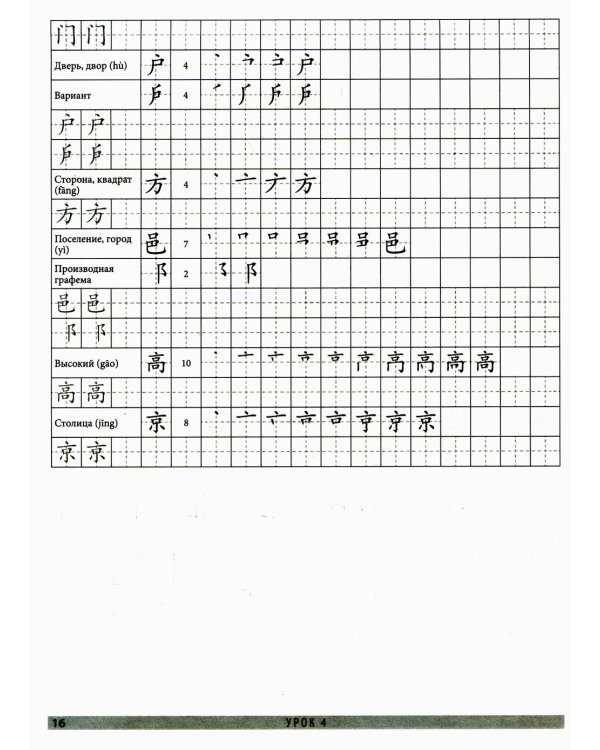 门 门
Дверь, двор (hù) 户 4 户
Вариант 戶 4 戶
户 户
戶 戶
Сторона, квадрат (fāng) 方 4 丶 亠 方
方 方
Поселение, город (yì) 邑 7 邑
Производная графема 阝 2 阝
邑 邑
阝 阝
Высокий (gāo) 高 10 丶 亠 高
高 高
Столица (jīng) 京 8 丶 亠 京
京 京
16 УРОК 4